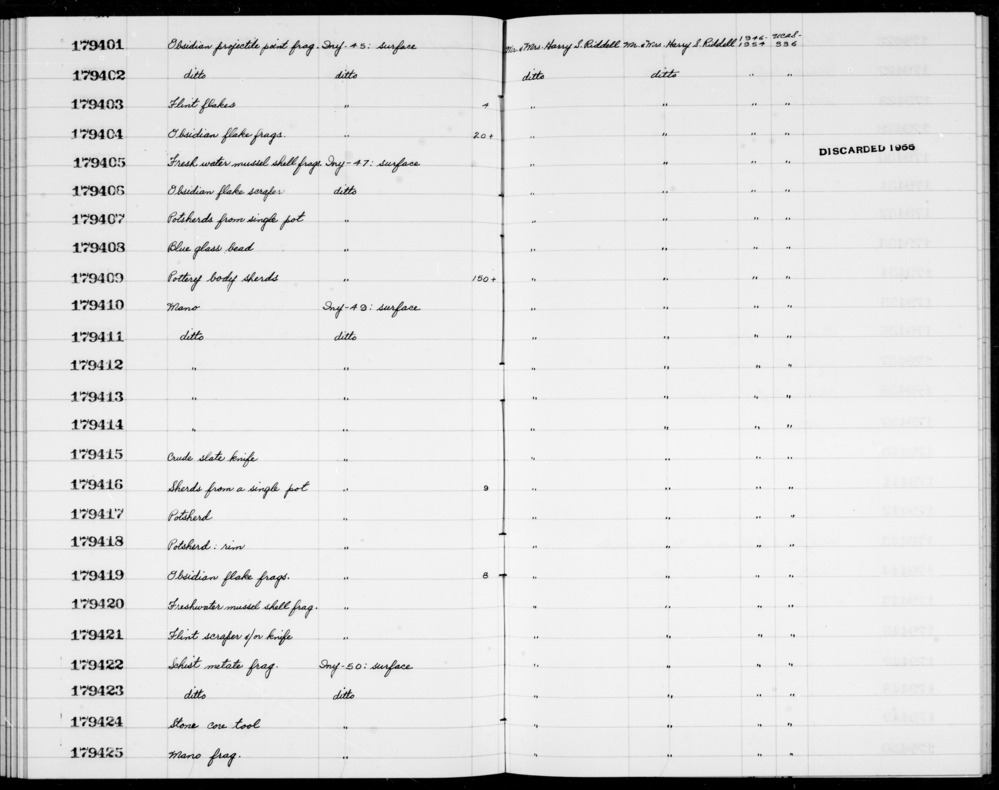 179401 Obsidian projectile point frag. Iny-45: surface Mr. & Mrs. Harry S. Riddell Mr. & Mrs. Harry S. Riddell 1946-1954 UCAS-336
179402 ditto ditto ditto ditto " "
179403 Flint flakes " 4 " " " "
179404 Obsidian flake frags. " 20+ " " " "
179405 Fresh water mussel shell frags. Iny-47: surface " " " " DISCARDED 1966
179406 Obsidian flake scraper ditto " " " "
179407 Potsherds from single pot " " " " "
179408 Blue glass bead " " " " "
179409 Pottery body sherds " 150+ " " " "
179410 Mano Iny-49: surface " " " "
179411 ditto ditto " " " "
179412 " " " " " "
179413 " " " " " "
179414 " " " " " "
179415 Crude slate knife " " " " "
179416 Sherds from a single pot " 9 " " " "
179417 Potsherd " " " " "
179418 Potsherd: rim " " " " "
179419 Obsidian flake frags. " 8 " " " "
179420 Freshwater mussel shell frag. " " " " "
179421 Flint scraper &/or knife " " " " "
179422 Schist metate frag. Iny-50: surface " " " "
179423 ditto ditto " " " "
179424 Stone core tool " " " " "
179425 Mano frag. " " " " "